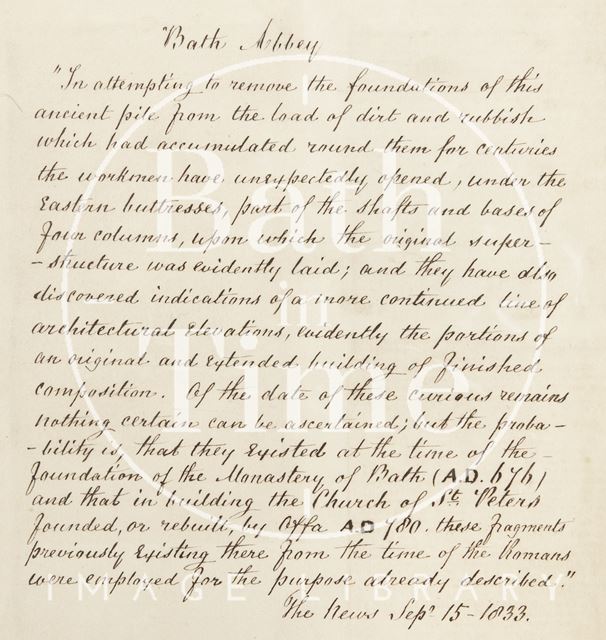 Bath Abbey
"In attempting to remove the foundations of this
ancient pile from the load of dirt and rubbish
which had accumulated round them for centuries
the workmen have unexpectedly opened, under the
Eastern buttresses, part of the shafts and bases of
four columns, upon which the original super-
-structure was evidently laid; and they have also
discovered indications of a more continued line of
architectural Elevations, evidently the portions of
an original and Extended building of finished
composition. Of the date of these curious remains
nothing certain can be ascertained; but the proba-
-bility is, that they Existed at the time of the
foundation of the Monastery of Bath (A.D. 676)
and that in building the Church of St. Peters
founded, or rebuilt by Offa A.D 780. these fragments
previously Existing there from the time of the Romans
were employed for the purpose already described."
The News Sepr 15-1833.
Bath
in
Time
IMAGE LIBRARY